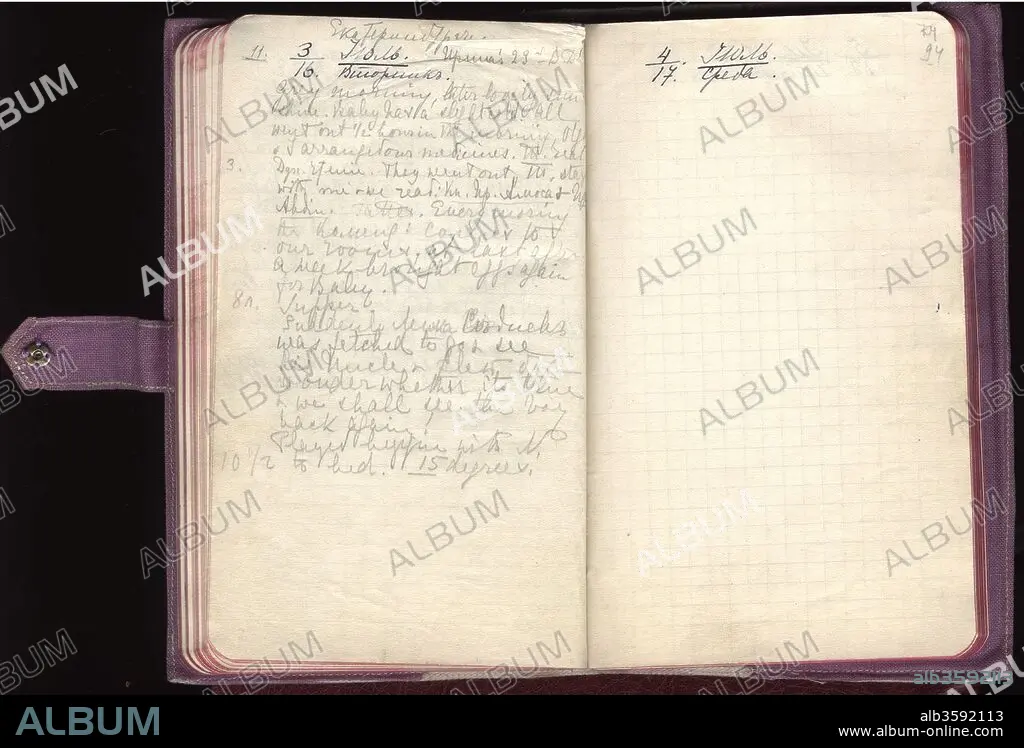 Екатеринбург.
11. 3/16. Июль. Ирина's 23rd B.D.
Вторникъ.
Grey morning, later lovely sun
shine. Baby has a slight cold. All
went out 1/2 hour in the morning, Olga
& I arranged our medicines. T. read
3. Spir. reading. They went out, T. stayed
with me & we read: Bk. Пр. Амоса & Пр.
Авдия. Tatted. Every morning
the Command. comes to
our rooms, at last after
a week brought eggs again
for Baby.
8h. Supper
Suddenly Lenka Sednev
was fetched to go & see
his Uncle & flew off –
wonder whether its true
& we shall see the boy
back again!
Played bezique with N.
10 1/2 to bed. 15 degrees.
94
4/17. Июль.
Среда.
ALBUM
alb3592113
ALBUM
alb3592113
www.album-online.com